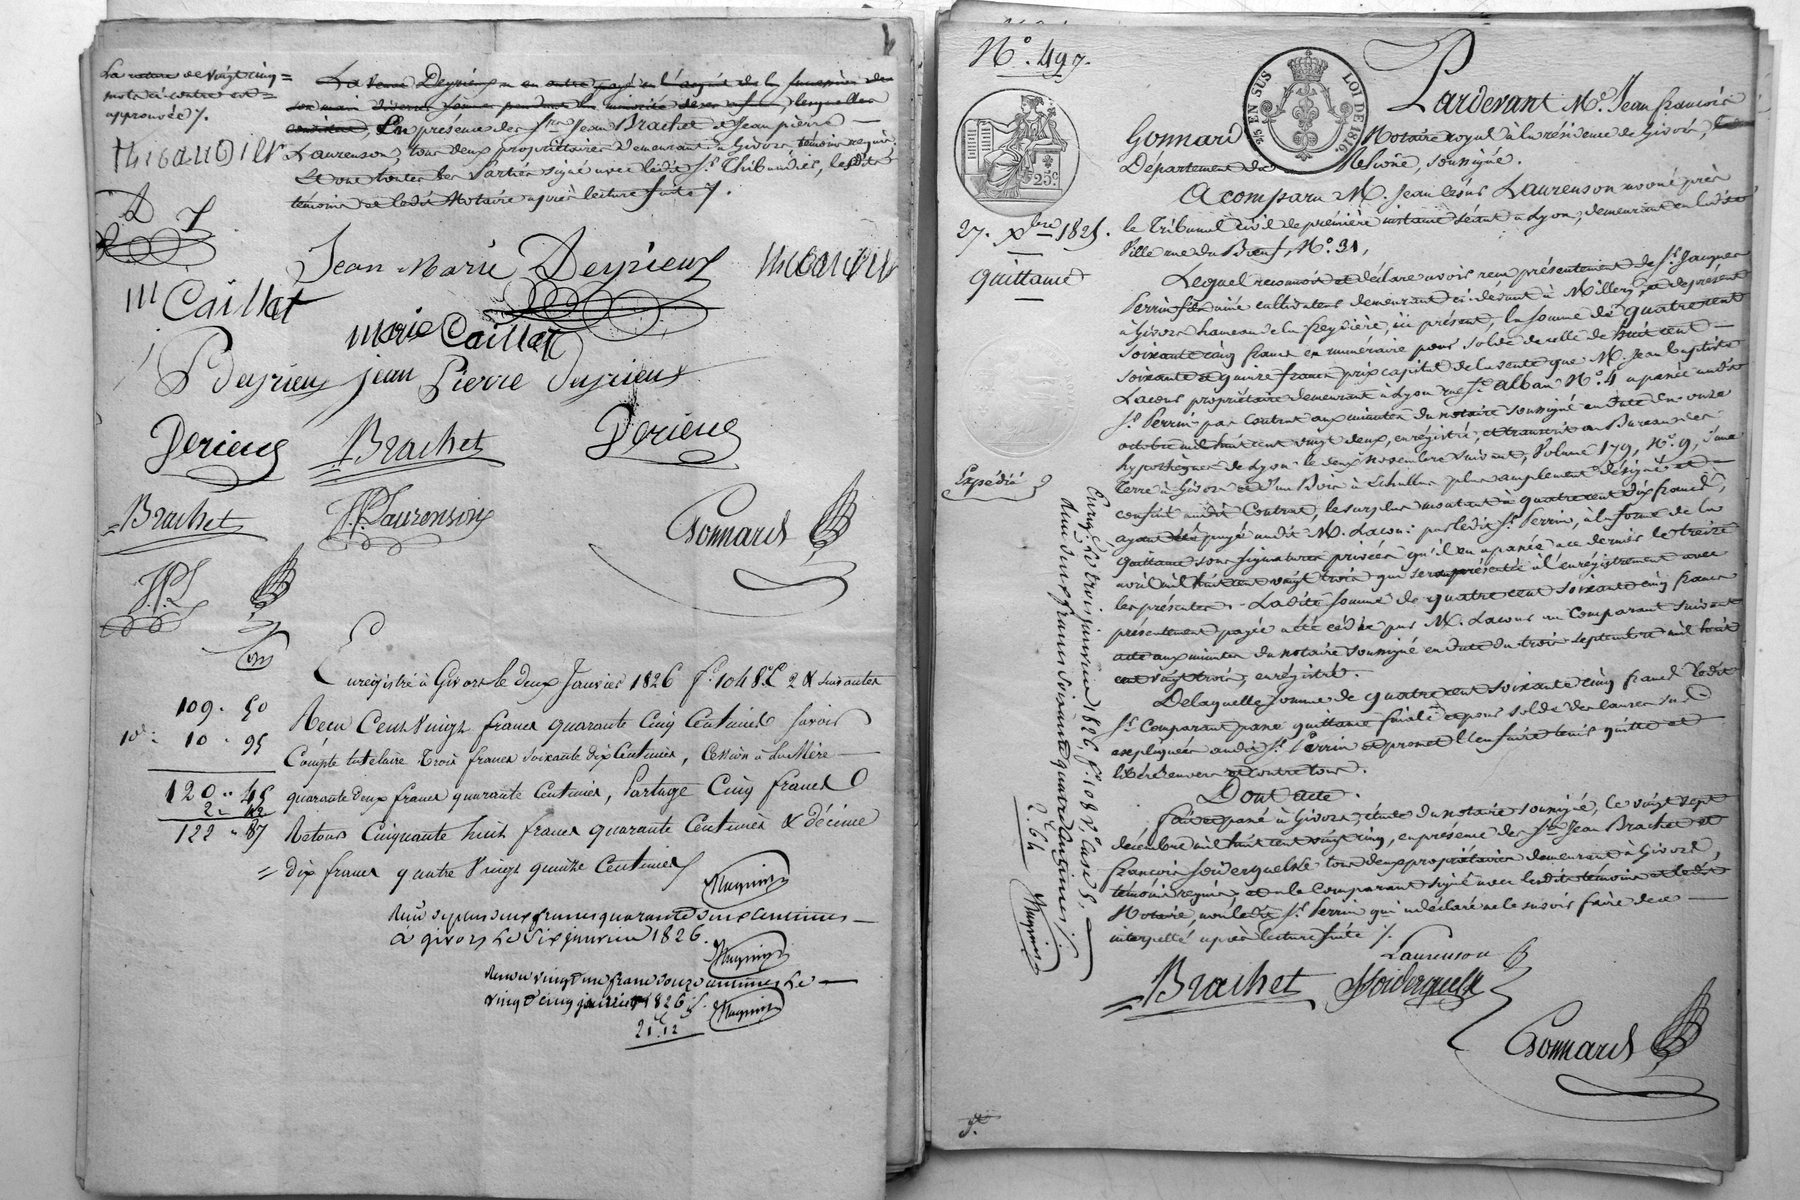 La rature de vingt cinq
mots ci contre est
approuvée ./.
thibaudier
D
M Caillat
P Deyrieux
Derieux
Brachet
J.P.L
La veuve Deyrieux
son mari
En présence des Srs Jean Brachet et Jean pierre
Laurenson, tous deux propriétaires demeurant à Givors, témoins requis
Et ont toutes les Parties signé avec ledit Sr Thibaudier, lesdits
témoins et ledit Notaire après lecture faite ./.
Jean Marie Deyrieux thibaudier
marie Caillat
jean Pierre deyrieux
Brachet Derieux
J.P. Laurenson
Gonnard
Enregistré à Givors le deux Janvier 1826 fo. 104 8o. Co 2 & suivantes
109 .. 50
10e .. 10 .. 95
120 .. 45
2 .. 42
122 .. 87
Reçu Cent Vingt francs quarante Cinq Centimes Savoir
Compte tutelaire Trois francs soixante dix Centimes, Cession à la Mère
quarante deux francs quarante Centimes, Partage Cinq francs
Retour Cinquante huit francs quarante Centimes & décime
= dix francs quatre Vingt quinze Centimes
Reçu de plus deux francs quarante deux centimes
à givors le six janvier 1826.
Reçu vingt un francs douze centimes le
vingt cinq janvier 1826 ./.
21. 12
No. 497.
25 EN SUS
LOI DE 1816
25c
27. Xbre 1825.
quittance
Expédié
Enregé. le trois janvier 1826, fo. 108 Vo. Case 5.
Reçu deux francs soixante quatre centimes ./.
2. 64
Pardevant Me. Jean françois
Gonnard Notaire royal à la résidence de Givors,
Département du Rhône, soussigné.
A comparu M. Jean Laurenson avoué près
le Tribunal civil de première instance séant à Lyon, demeurant en ladite
Ville rue du Bœuf, No. 31,
Lequel reconnoit et déclare avoir reçu présentement de Sr. Jacques
Perrin fils ainé cultivateur demeurant ci-devant à Millery, et de présent
à Givors hameau de la freydière, ici présent, la somme de quatre cent
soixante cinq francs en numéraire pour solde de celle de huit cent
soixante et quinze francs prix capital de la vente que M. Jean baptiste
Lacour propriétaire demeurant à Lyon rue St. alban No. 4 a passée audit
Sr. Perrin par Contrat aux minutes du notaire soussigné en date du onze
octobre mil huit cent vingt deux, enrégistré, et transcrit au Bureau des
hypothèques de Lyon le deux novembre suivant, Volume 179, No. 9, d'une
Terre à Givors et d'un Bois à Echallas plus amplement désignés et
confiné audit Contrat, le surplus montant à quatre cent dix francs,
ayant été payé audit M. Lacour par ledit Sr. Perrin, à la forme de la
quittance sous signatures privées qu'il en a passée à ce dernier le treize
avril mil huit cent vingt trois qui sera présentée à l'enrégistrement avec
les présentes. - Ladite somme de quatre cent soixante cinq francs
présentement payée a été cédée par M. Lacour au Comparant suivant
acte aux minutes du notaire soussigné en date du trois septembre mil huit
cent vingt trois, enrégistré.
De laquelle somme de quatre cent soixante cinq francs ledit
Sr. Comparant passe quittance finale et pour solde des causes sus
expliquées audit Sr. Perrin et promet l'en faire tenir quitte et
libéré envers et contre tous.
Dont acte.
fait et passé à Givors, étude du notaire soussigné, le vingt sept
décembre mil huit cent vingt cinq, en présence des Srs. Jean Brachet et
françois foiderquelle tous deux propriétaires demeurant à Givors,
témoins requis, et a le Comparant signé avec lesdits témoins et ledit
Notaire, non ledit Sr. Perrin qui a déclaré ne le savoir faire de ce
interpellé après lecture faite ./.
Laurenson
Brachet
Gonnard